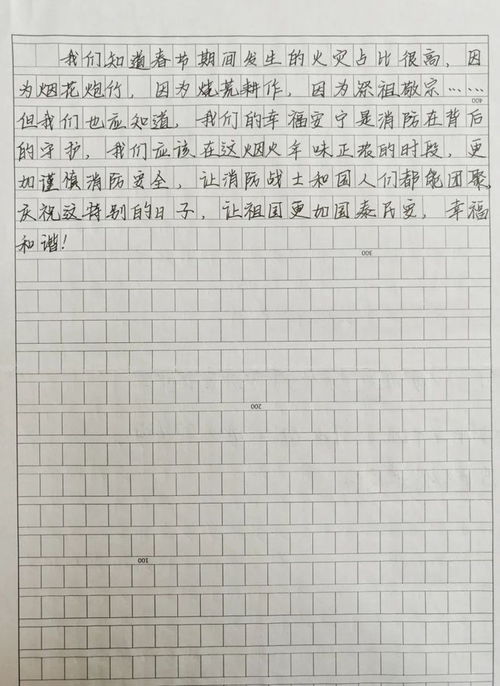 我们知道春节期间发生的火灾占比很高，因
为烟花炮竹，因为烧荒耕作，因为祭祖敬宗……
400
但我们也应知道，我们的幸福安宁是消防在背后
的守护，我们应该在这烟火年味正浓的时段，更
加谨慎消防安全，让消防战士和国人们都能团聚，
庆祝这特别的日子，让祖国更加国泰民安，幸福
和谐！
300
200
100